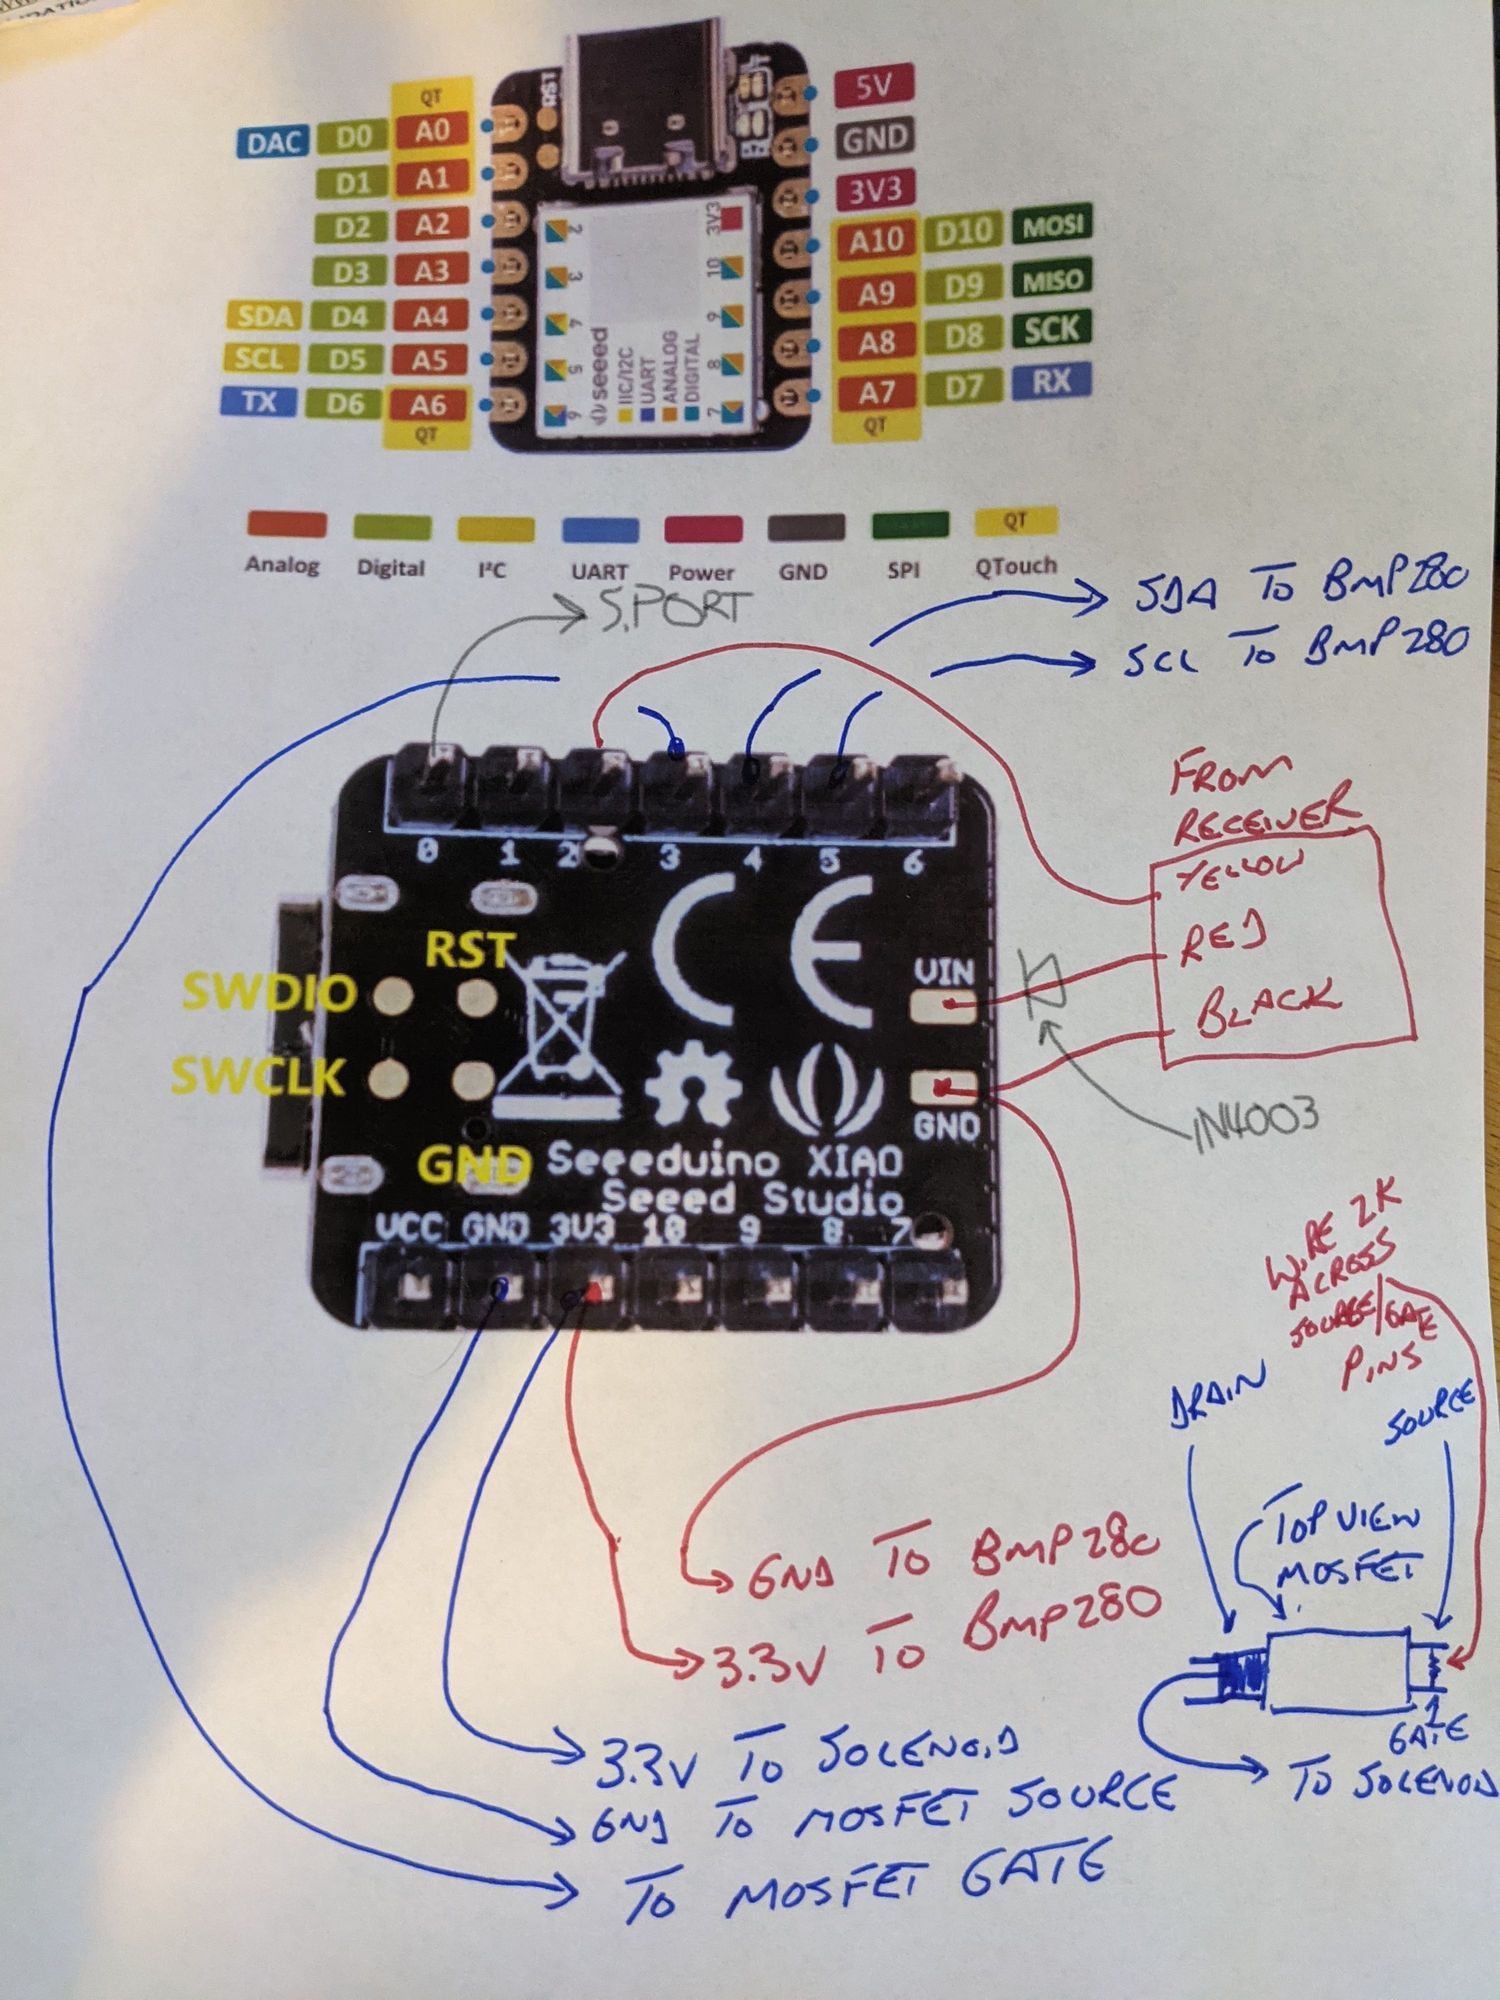 QT
DAC D0 A0
D1 A1
D2 A2
D3 A3
SDA D4 A4
SCL D5 A5
TX D6 A6
QT
RST
2
3
4
5
6
3V3
10
9
8
7
seeed
IIC/I2C
UART
ANALOG
DIGITAL
5V
GND
3V3
A10 D10 MOSI
A9 D9 MISO
A8 D8 SCK
A7 D7 RX
QT
QT
Analog Digital I²C UART Power GND SPI QTouch
S.PORT
SDA TO BMP280
SCL TO BMP280
0 1 2 3 4 5 6
RST
SWDIO
SWCLK
GND
VIN
GND
Seeeduino XIAO
Seeed Studio
VCC GND 3V3 10 9 8 7
FROM
RECEIVER
YELLOW
RED
BLACK
1N4003
WIRE 2K
ACROSS
SOURCE/GATE
PINS
DRAIN
SOURCE
TOP VIEW
MOSFET
GATE
TO SOLENOID
GND TO BMP280
3.3V TO BMP280
3.3V TO SOLENOID
GND TO MOSFET SOURCE
TO MOSFET GATE